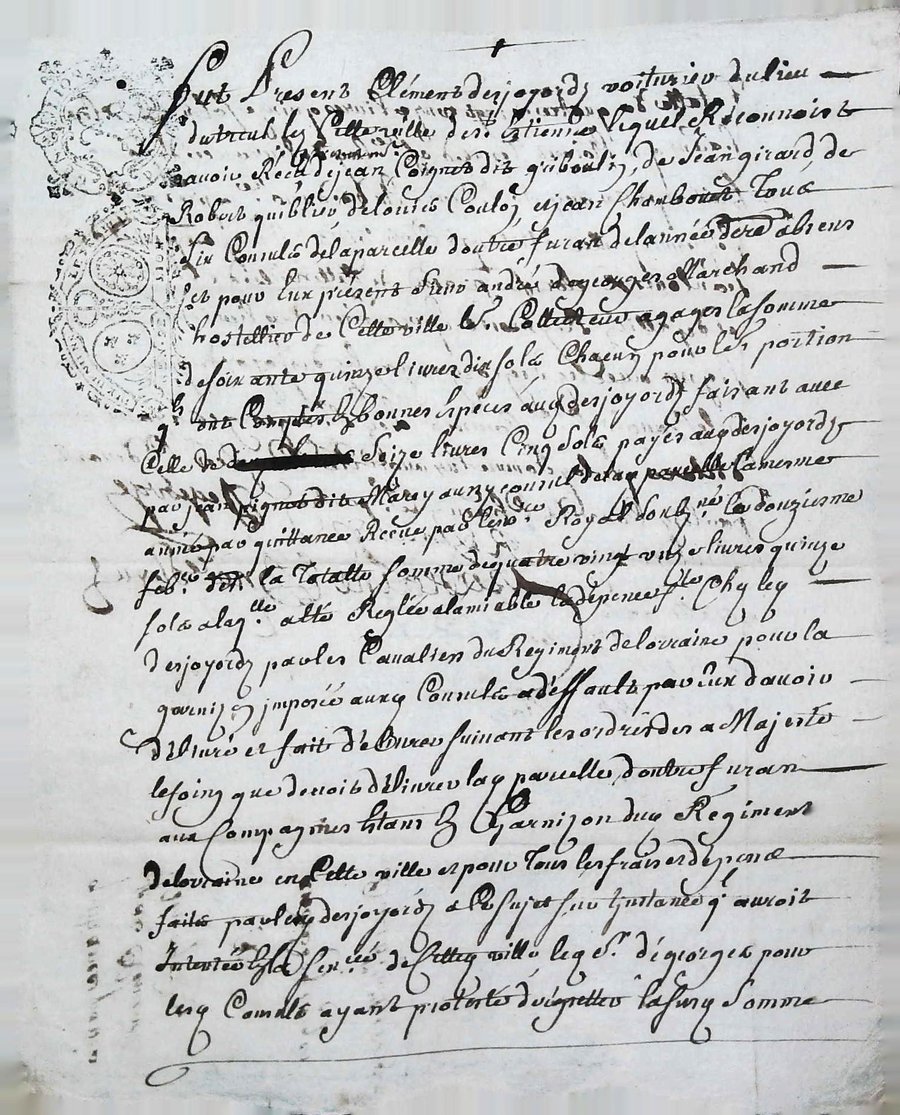 Fut Present Clément desjoyordz voiturier du lieu
du treul lez Cette ville de st Estienne lequel Reconnoist
avoir Reçu de jean Coignet dit griboulin, de Jean girard, de
Robert quiblier de louis Coulon et jean Chambouet Tous
Six Consuls de la parcelle d'outre furan de l'année dere absens
Et pour Eux présent Sieur andré degeorges Marchand
hostellier de Cette ville le Sr. Collecteur a gages la somme
de soixante quinze livres dix sols Chacun pour les portion
qu'ils ont Comptés En bonnes Especes audt desjoyordz faisant avec
Celle de Seize livres Cinq Sols payés audt desjoyordz
par jean pignet dit Marey aussy consul de lad parcelle la mesme
année par quittance Receue par le nore. Royal soubz.né le douziesme
feb.er la Totalle somme de quatre vingt unze livres quinze
sols a laq.lle a esté Reglée a lamiable la depence f.te Chez ley
desjoyordz par les Cavaliers du Regiment de lorraine pour la
garnizon imposée auxq Consuls a deffault par Eux davoir
délivré et fait délivrer suivant les ordres de sa Majesté
le foing que devoit délivrer laq parcelle d'outre furan
aux Compagnies Estans En Garnizon duq Regiment
de lorraine en Cette ville et pour Tous les frais et depens
faits par leq desjoyordz a Ce Sujet sur Instance q' auroit
Intentée En la sen.cée de Cetteq ville leq sr. degeorges pour
lesq Consuls ayant protesté de regetter lasusq Somme